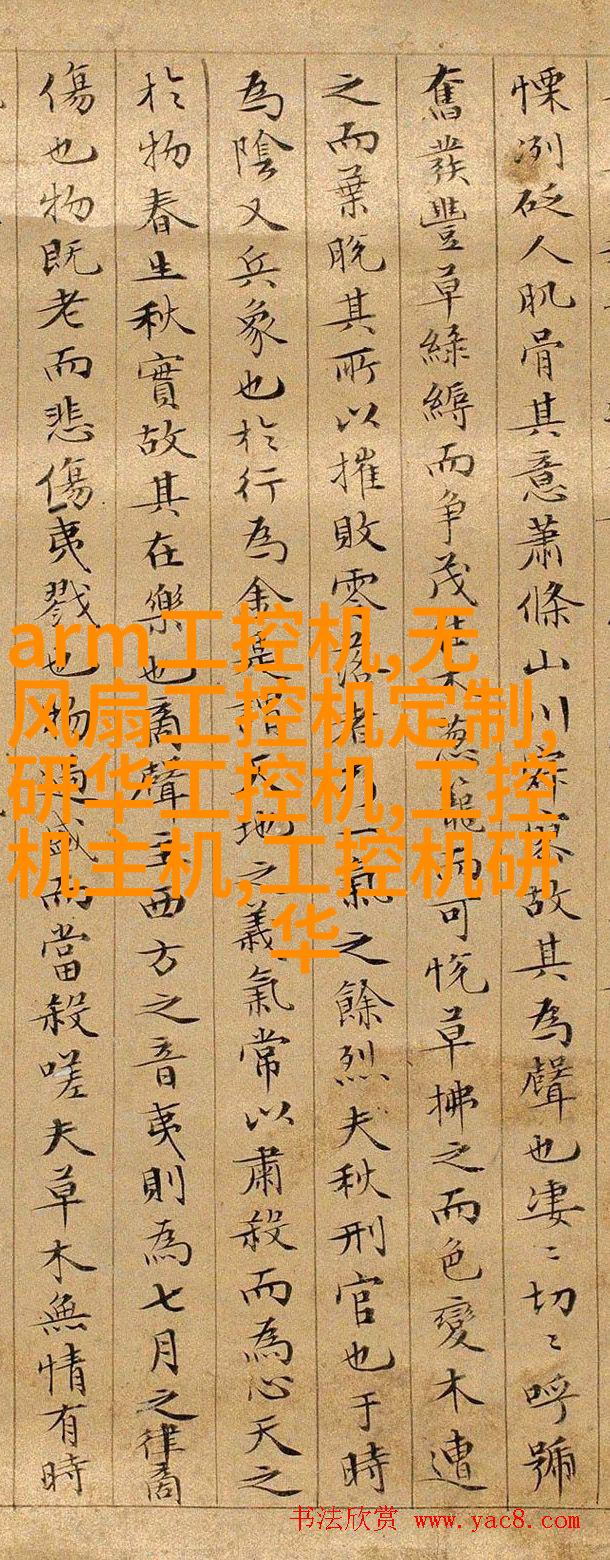 慄冽砭人肌骨其意蕭條山川寂寥故其為聲也淒〻切〻呼號
奮發豐草綠縟而爭茂佳木葱蘢而可悅草拂之而色變木遭
之而葉脫其所以摧敗零落者乃一氣之餘烈夫秋刑官也于時
為陰又兵象也於行為金是謂天地之義氣常以肅殺而為心天之
於物春生秋實故其在樂也商聲主西方之音夷則為七月之律商
傷也物既老而悲傷夷戮也物過盛而當殺嗟夫草木無情有時
arm工控机,无
风扇工控机定制,
研华工控机,工控
机主机,工控机研
华
书法欣赏 www.yac8.com